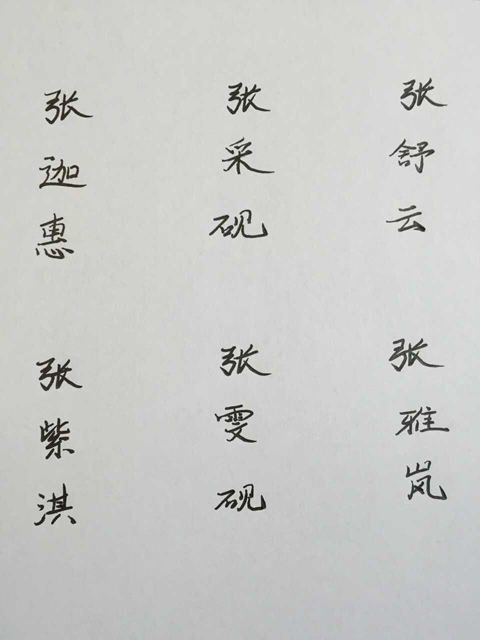 张迦惠
张采砚
张舒云
张紫淇
张雯砚
张雅岚